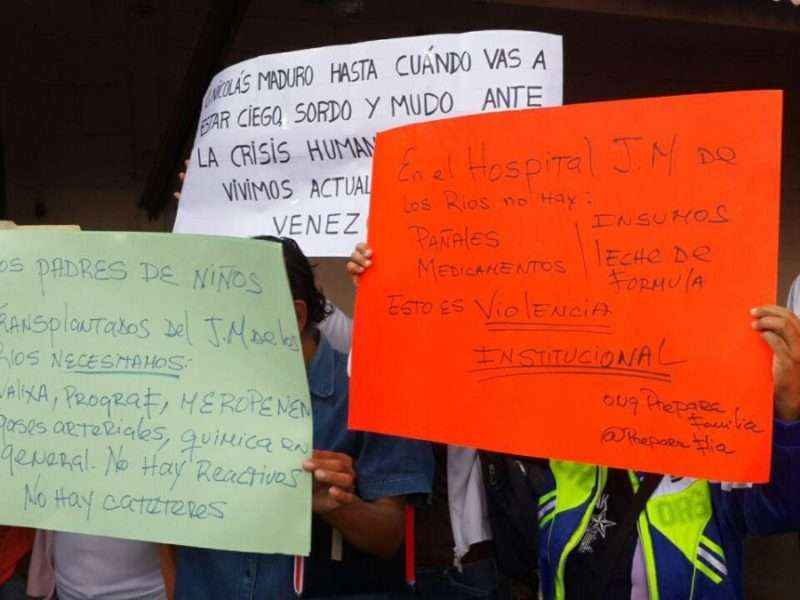 NICOLÁS MADURO HASTA CUÁNDO VAS A
ESTAR CIEGO, SORDO Y MUDO ANTE
LA CRISIS HUMAN
VIVIMOS ACTUAL
VENEZ
En el Hospital J.M de
los Rios no hay:
PAÑALES
MEDICAMENTOS
INSUMOS
leche de
Formula
Esto es Violencia
INSTITUCIONAL
ong Prepara
Familia
@Prepara Flia
OS PADRES DE NIÑOS
TRANSPLANTADOS Del J.M de los
RIOS NECESITAMOS:
VALIXA, PROGRAF, MEROPENEN
gases arteriales, quimica en
general. No Hay Reactivos
No Hay CATETERES